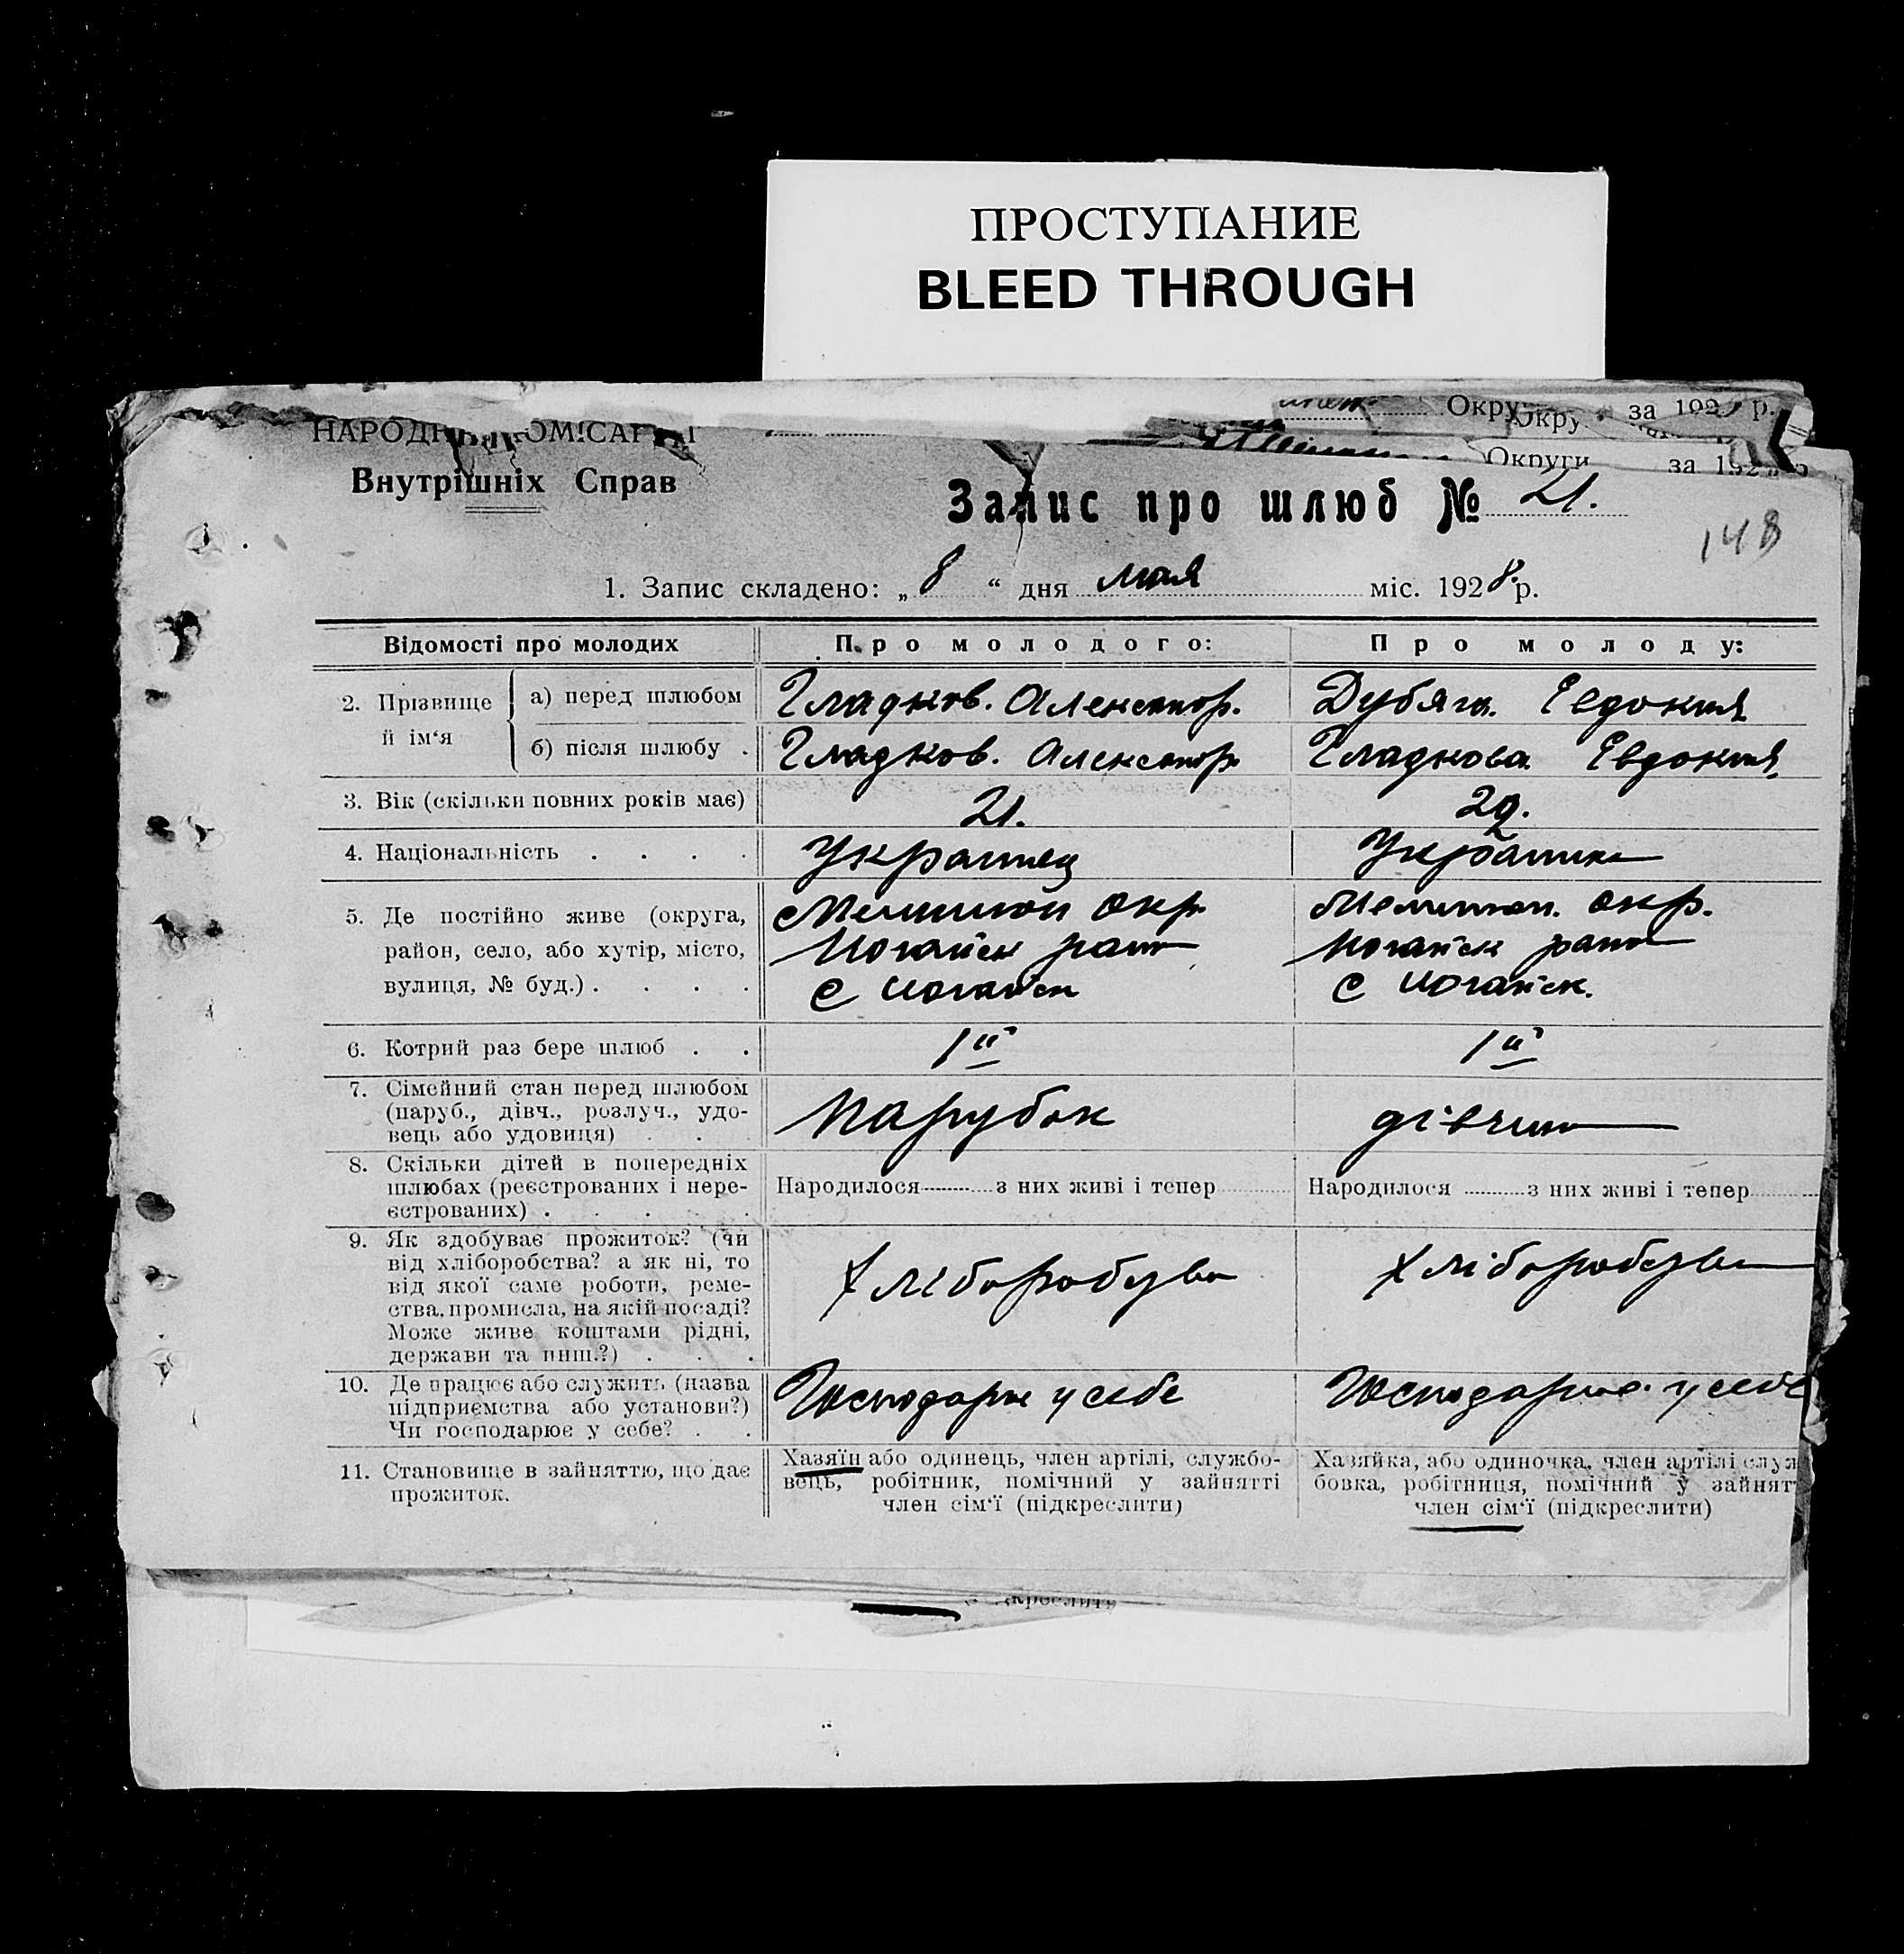 ПРОСТУПАНИЕ
BLEED THROUGH
Округи за 192 р.
НАРОДН КОМІСАРІЯТ
Внутрішніх Справ
Запис про шлюб № 21.
148
1. Запис складено: „ 8 “ дня мая міс. 1928 р.
Відомості про молодих
Про молодого:
Про молоду:
2. Прізвище й ім‘я
а) перед шлюбом
Гладков. Александр.
Дубяга Евдокия
б) після шлюбу .
Гладков. Александр
Гладкова Евдокия
3. Вік (скільки повних років має)
21.
29.
4. Національність . . . .
Украинец
Украинка
5. Де постійно живе (округа,
район, село, або хутір, місто,
вулиця, № буд.) . . . .
Мелитоп окр
Ногайск район
с Ногайск
Мелитоп. окр.
Ногайск район
с Ногайск.
6. Котрий раз бере шлюб . .
1й
1й
7. Сімейний стан перед шлюбом
(паруб., дівч., розлуч., удо-
вець або удовиця) . . .
Парубок
дівчина
8. Скільки дітей в попередніх
шлюбах (реєстрованих і нере-
єстрованих) . . . . .
Народилося з них живі і тепер
Народилося з них живі і тепер
9. Як здобуває прожиток? (чи
від хліборобства? а як ні, то
від якої саме роботи, реме-
ства, промисла, на якій посаді?
Може живе коштами рідні,
держави та инш.?) . . .
Хліборобство
Хліборобство
10. Де працює або служить (назва
підприємства або установи?)
Чи господарює у себе? . .
Господарює у себе
Господарює у себе
11. Становище в зайняттю, що дає
прожиток.
Хазяїн або одинець, член артілі, службо-
вець, робітник, помічний у зайнятті
член сім‘ї (підкреслити)
Хазяйка, або одиночка, член артілі служ
бовка, робітниця, помічний у зайнят
член сім‘ї (підкреслити)